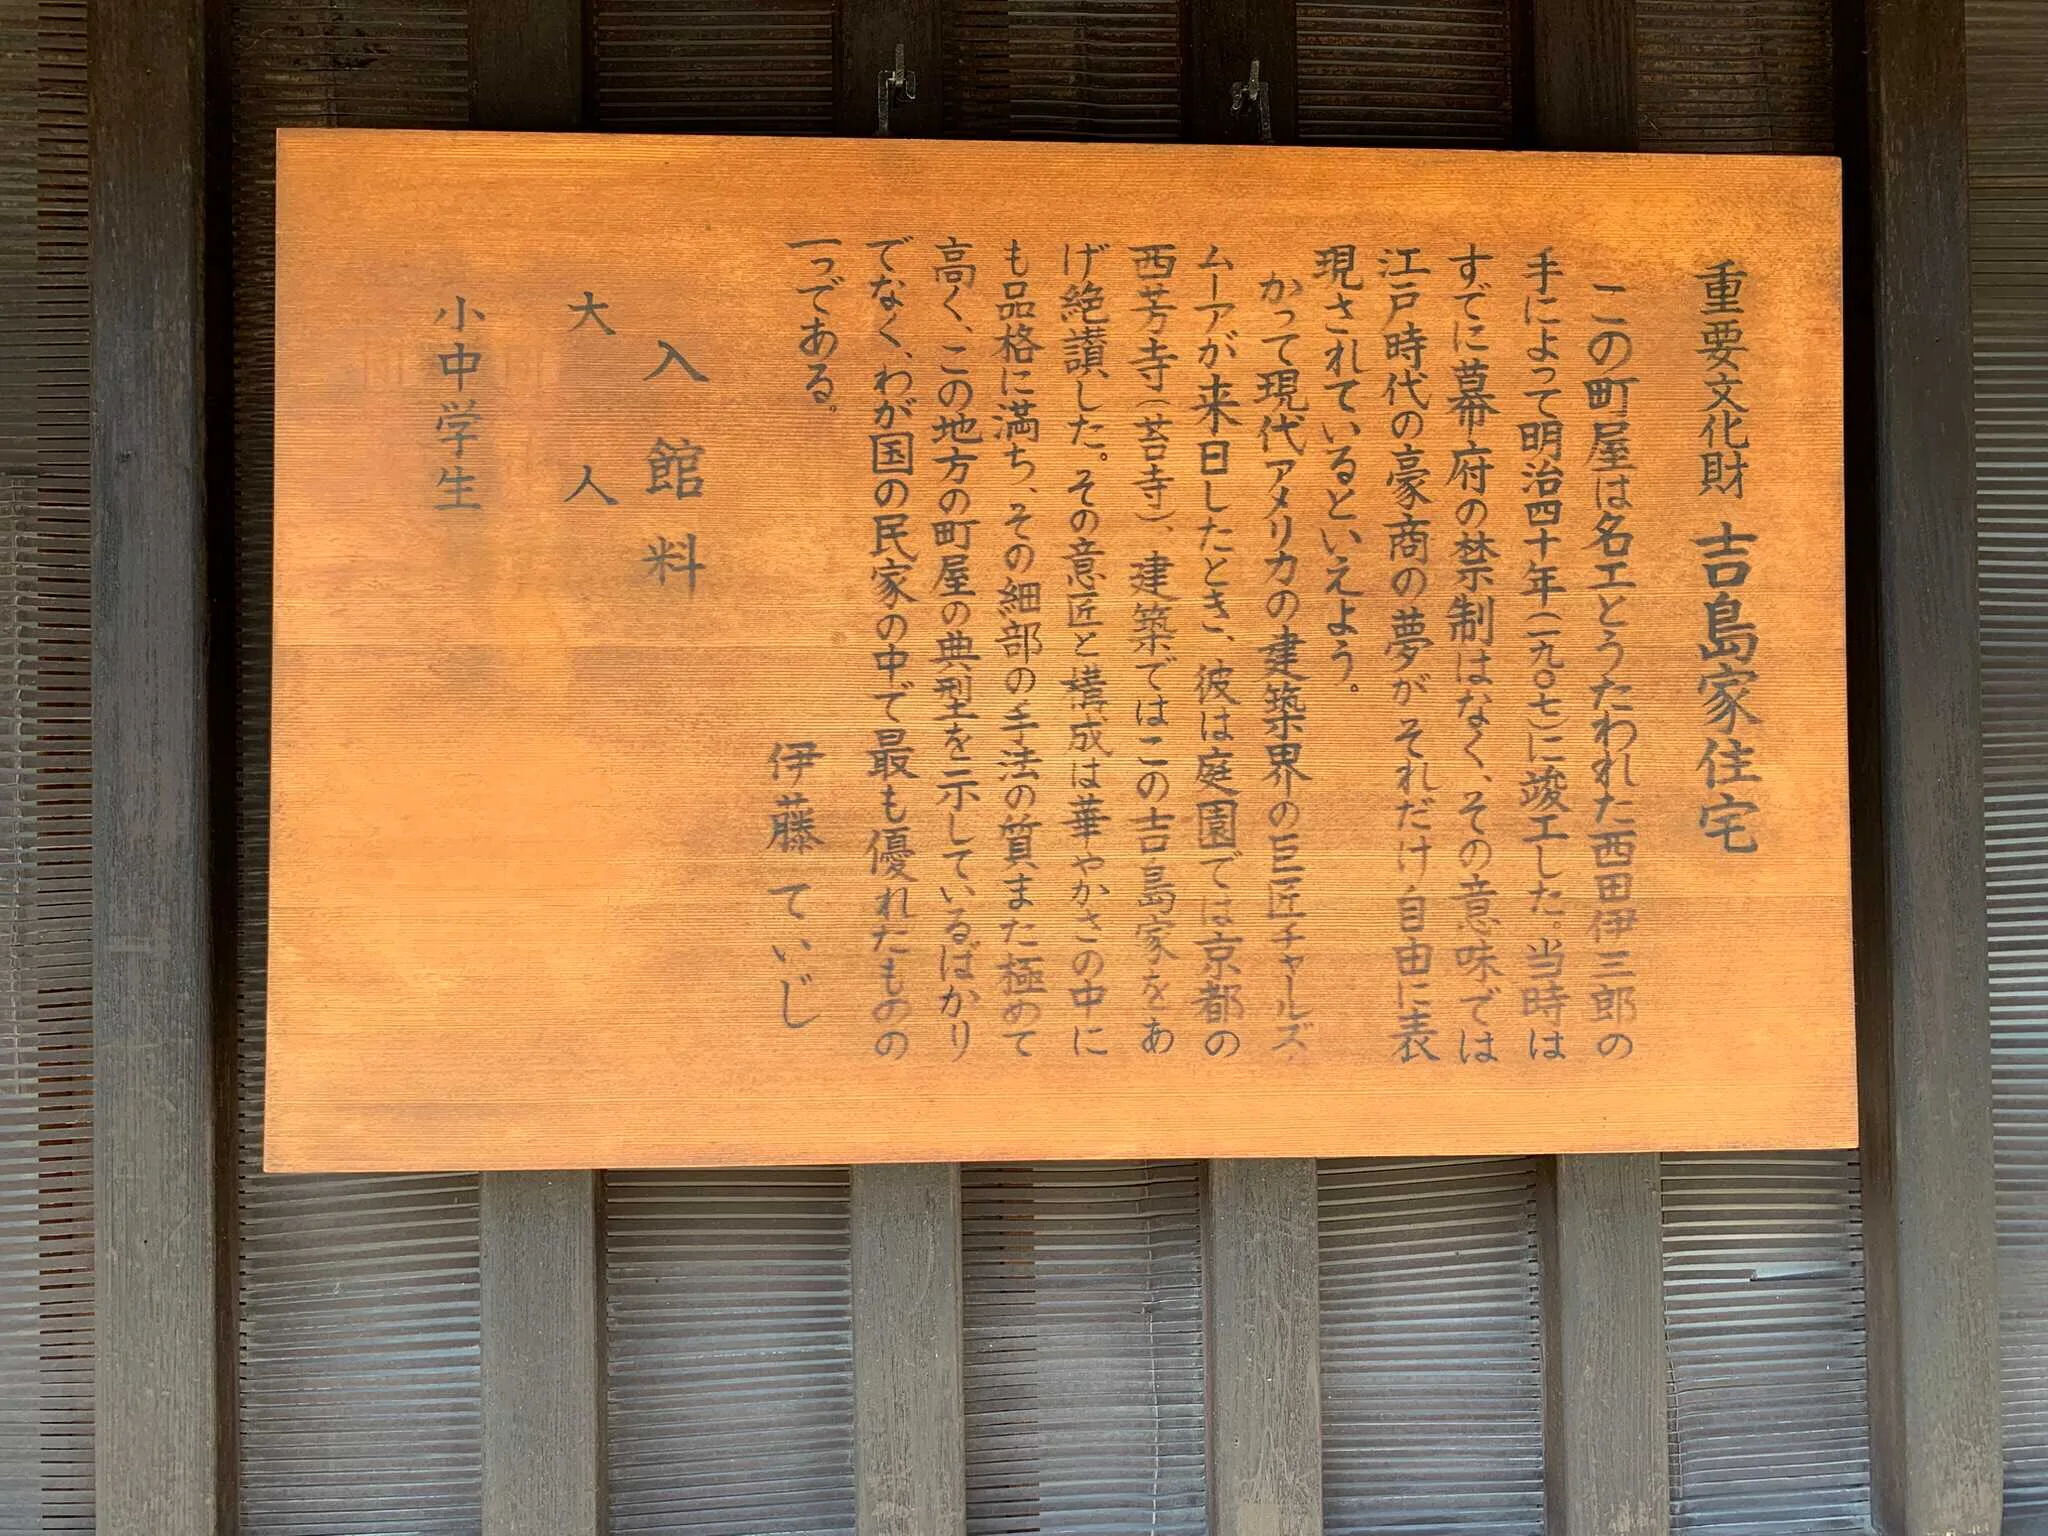 重要文化財 吉島家住宅
この町屋は名工とうたわれた西田伊三郎の
手によって明治四十年(一九〇七)に竣工した。当時は
すでに幕府の禁制はなく、その意味では
江戸時代の豪商の夢がそれだけ自由に表
現されているといえよう。
かって現代アメリカの建築界の巨匠チャールズ・
ムーアが来日したとき、彼は庭園では京都の
西芳寺(苔寺)、建築ではこの吉島家をあ
げ絶讃した。その意匠と構成は華やかさの中に
も品格に満ち、その細部の手法の質また極めて
高く、この地方の町屋の典型を示しているばかり
でなく、わが国の民家の中で最も優れたものの
一つである。
伊藤ていじ
入館料
大人
小中学生